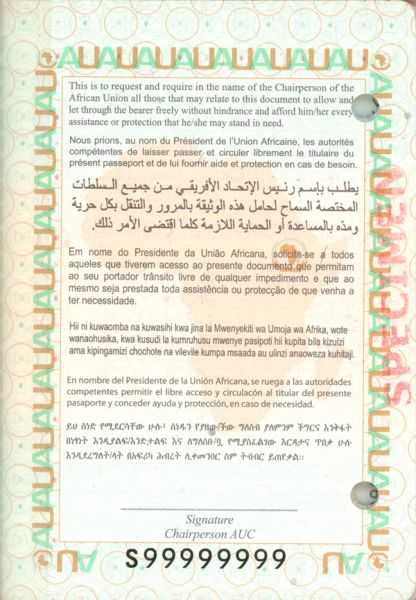 AUAUAUAUAUAUAUAUAU
This is to request and require in the name of the Chairperson of the
African Union all those that may relate to this document to allow and
let through the bearer freely without hindrance and afford him/her every
assistance or protection that he/she may stand in need.
Nous prions, au nom du Président de l'Union Africaine, les autorités
compétentes de laisser passer et circuler librement le titulaire du
présent passeport et de lui fournir aide et protection en cas de besoin.
يطلب بإسم رئيس الإتحاد الأفريقي من جميع السلطات
المختصة السماح لحامل هذه الوثيقة بالمرور والتنقل بكل حرية
ومده بالمساعدة أو الحماية اللازمة كلما اقتضى الأمر ذلك.
Em nome do Presidente da União Africana, solicita-se a todos
aqueles que tiverem acesso ao presente documento que permitam
ao seu portador trânsito livre de qualquer impedimento e que ao
mesmo seja prestada toda assistência ou protecção de que venha a
ter necessidade.
Hii ni kuwaomba na kuwasihi kwa jina la Mwenyekiti wa Umoja wa Afrika, wote
wanaohusika, kwa kusudi la kumruhusu mwenye pasipoti hii kupita bila kizuizi
ama kipingamizi chochote na vilevile kumpa msaada au ulinzi anaoweza kuhitaji.
En nombre del Presidente de la Unión Africana, se ruega a las autoridades
competentes permitir el libre acceso y circulacón al titular del presente
pasaporte y conceder ayuda y protección, en caso de necesidad.
ይህ ሰነድ የሚደርሳቸው ሁሉ፣ ሰነዱን የያዘው/ችው ግለሰብ ያለምንም ችግርና እንቅፋት
በነፃነት እንዲያልፍ/እንድታልፍ እና ለግለሰቡ/ቧ የሚያስፈልገው እርዳታና ጥበቃ ሁሉ
እንዲደረግለት/ላት በአፍሪካ ሕብረት ሊቀመንበር ስም ትብብር ይጠየቃል።
Signature
Chairperson AUC
S99999999
SPECIMEN